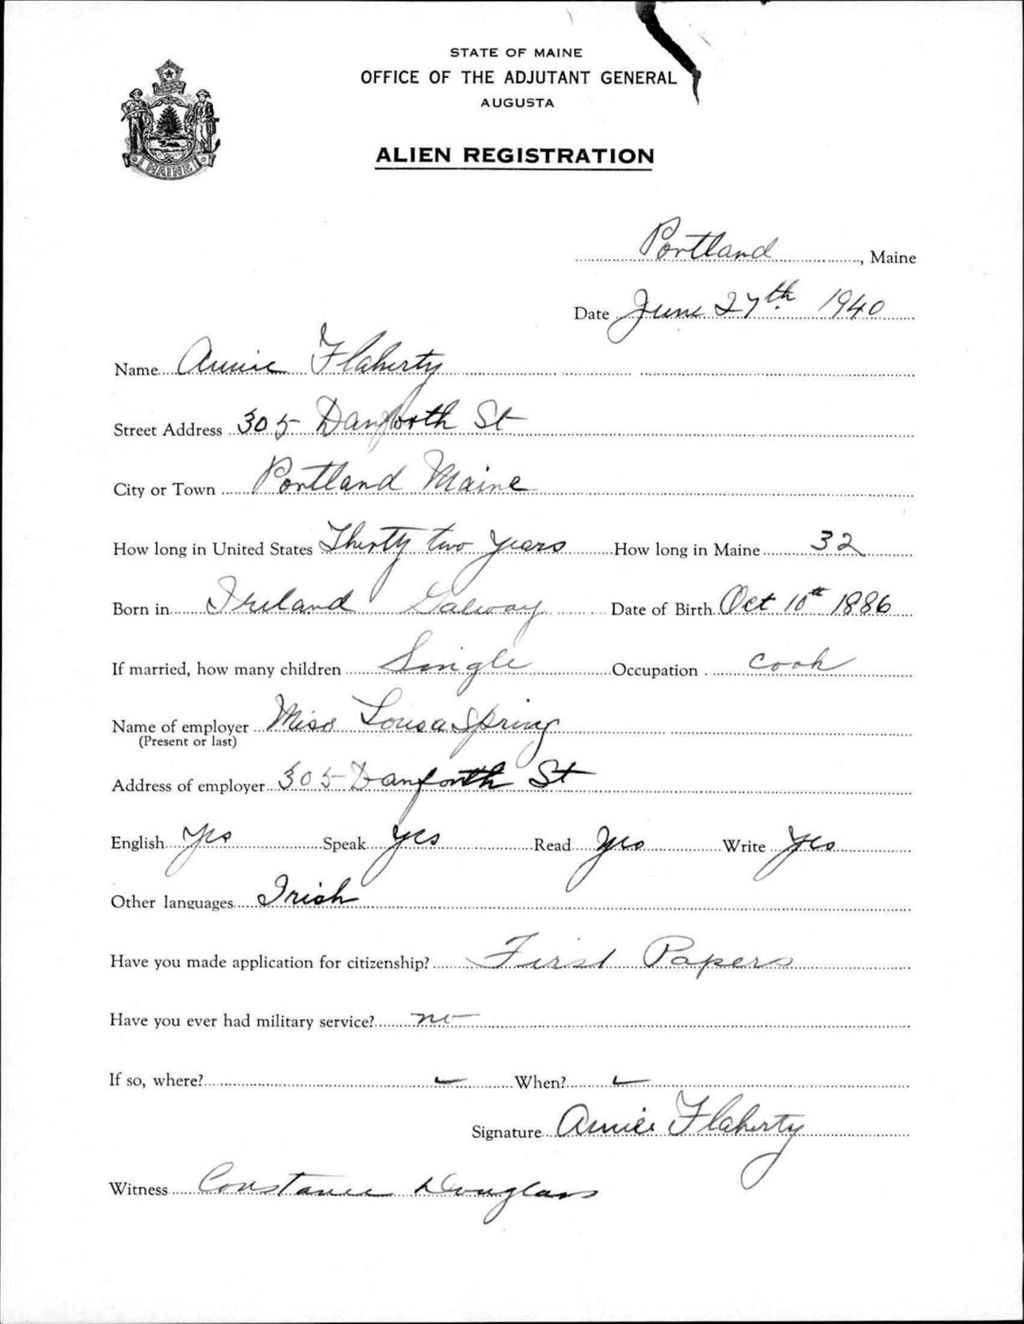 STATE OF MAINE
OFFICE OF THE ADJUTANT GENERAL
AUGUSTA
ALIEN REGISTRATION
MAINE
Portland, Maine
Date June 27th 1940
Name Annie Flaherty
Street Address 305 Danforth St
City or Town Portland Maine
How long in United States Thirty two years How long in Maine 32
Born in Ireland Galway Date of Birth Oct 10th 1886
If married, how many children Single Occupation cook
Name of employer Miss Lousa Spring
(Present or last)
Address of employer 305 Danforth St
English Yes Speak Yes Read Yes Write Yes
Other languages Irish
Have you made application for citizenship? First Papers
Have you ever had military service? no
If so, where? When?
Signature Annie Flaherty
Witness Constance Douglass